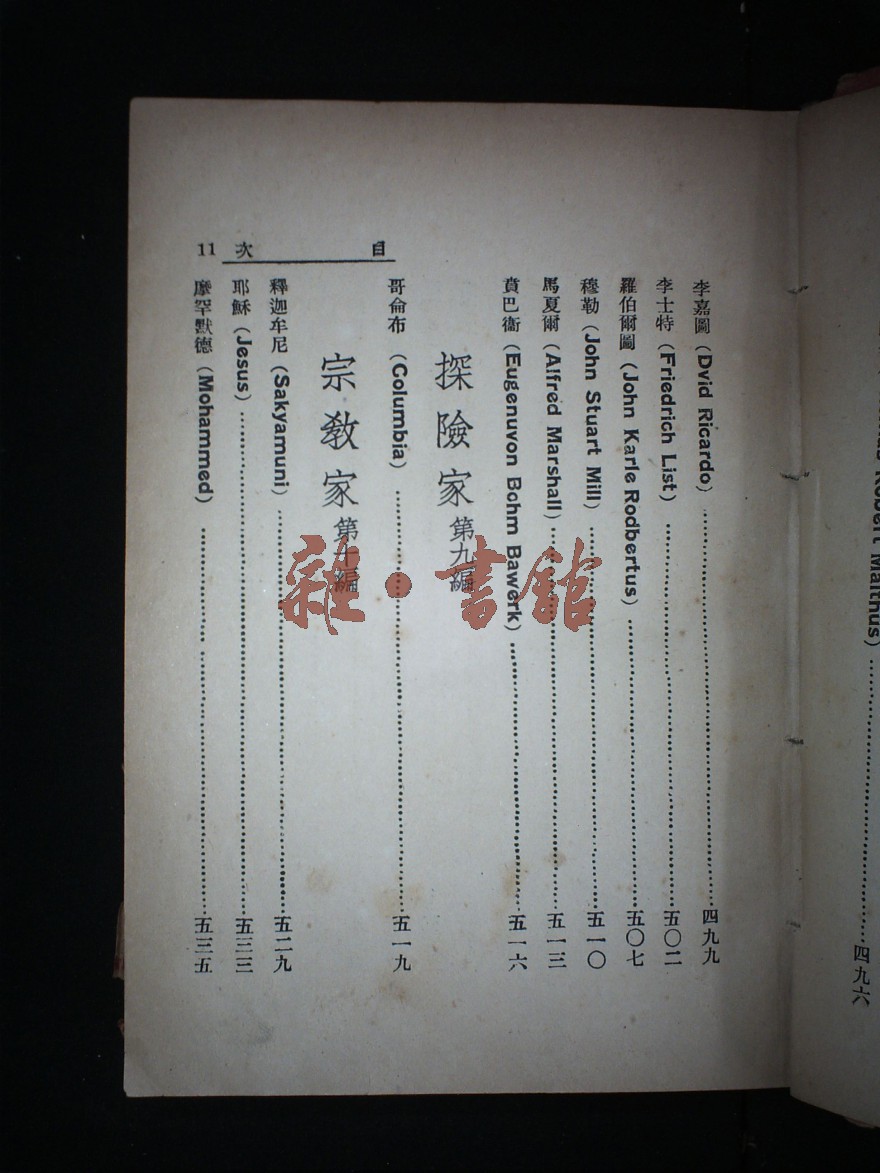 Robert Malthus)……四九六
李嘉圖 (Dvid Ricardo)……四九九
李士特 (Friedrich List)……五〇二
羅伯爾圖 (John Karle Rodbertus)……五〇七
穆勒 (John Stuart Mill)……五一〇
馬夏爾 (Alfred Marshall)……五一三
賁巴衞 (Eugenuvon Bohm Bawerk)……五一六
探險家 第九編
哥侖布 (Columbia)……五一九
宗教家 第十編
釋迦牟尼 (Sakyamuni)……五二九
耶穌 (Jesus)……五三三
摩罕默德 (Mohammed)……五三五
目次 11
雜·書館